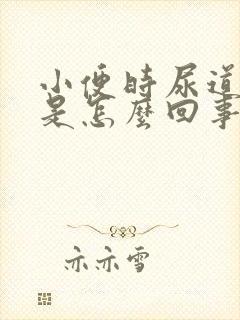 小便时尿道
是怎麽回事
亦亦雪